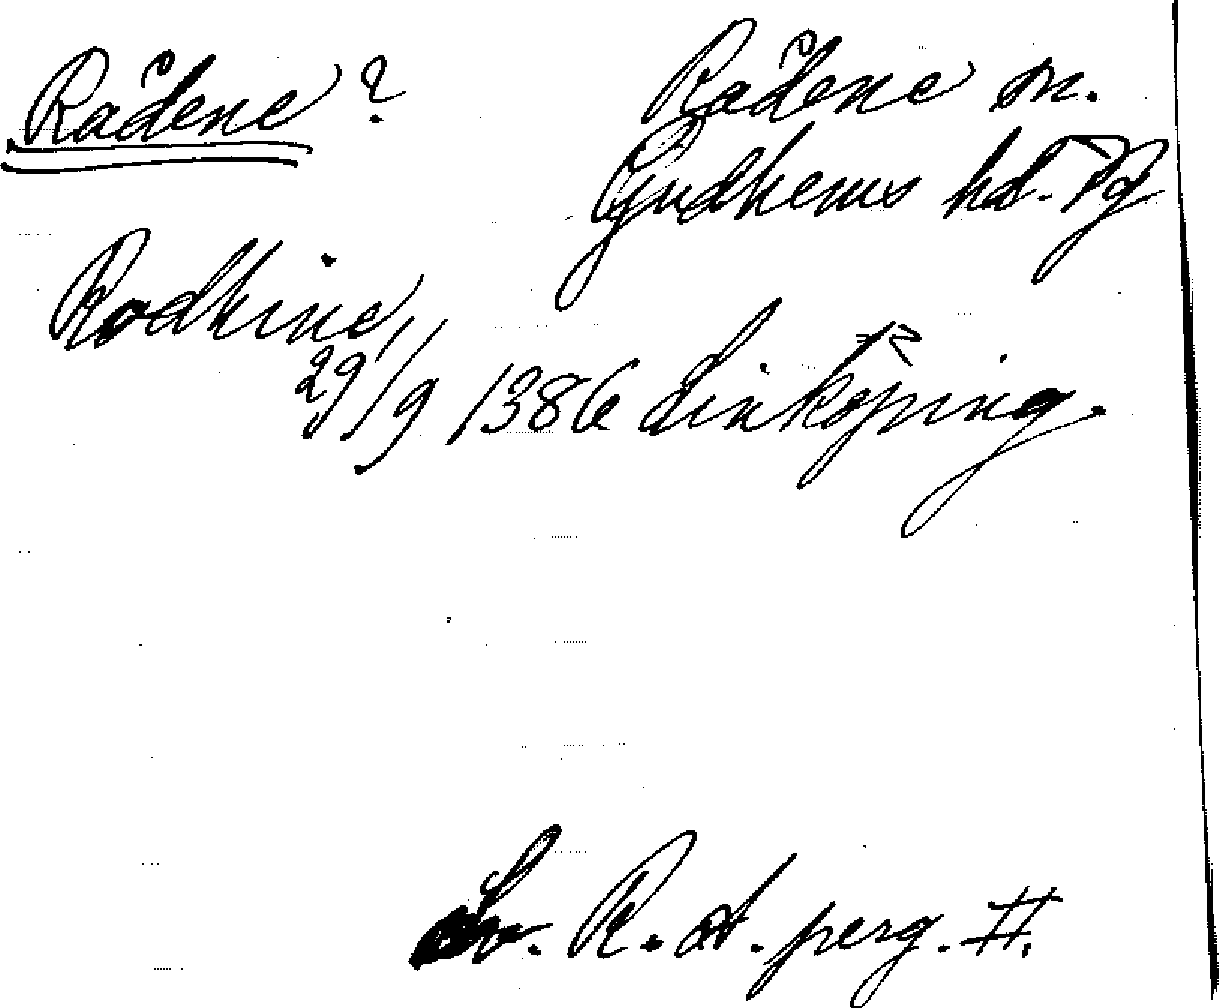 Rådene ?
Rådene sn.
Gudhems hd. Vg
Rodhine,
29/9 1386 Linköping.
Sv. R. A. perg. II.